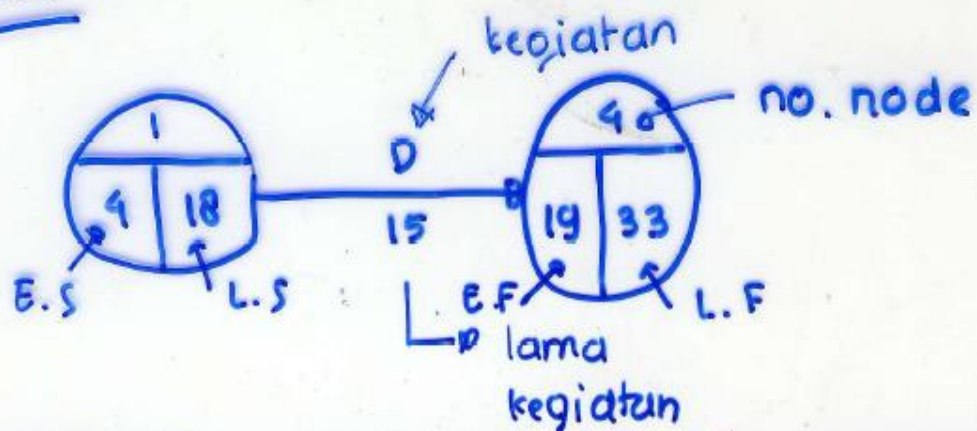 kegiatan
1
D
4
no. node
4
18
15
19
33
E.S
L.S
E.F
L.F
lama
kegiatan